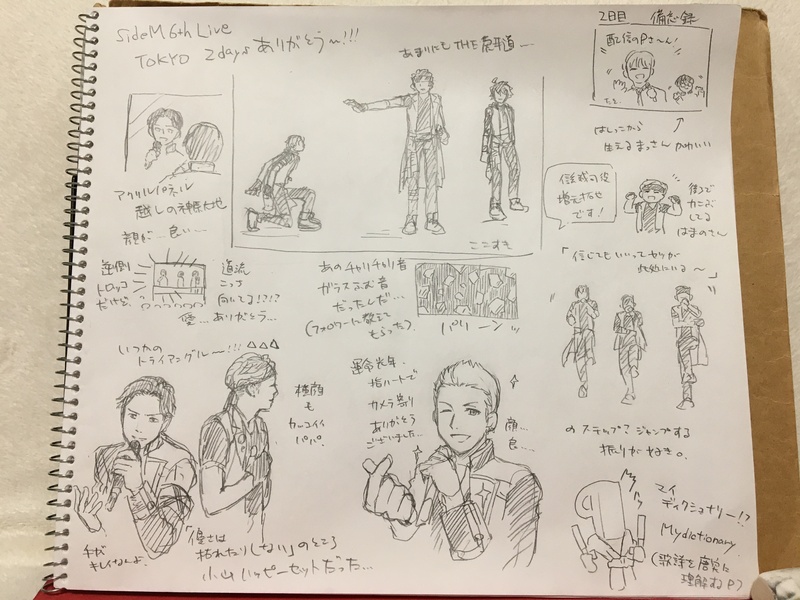 SideM 6th Live
TOKYO 2days ありがとう〜!!!
あまりにも THE 虎牙道…
2日目 備忘録
配信のPさ〜ん!
はしっこから
生えるまっさん かわいい
アクリルパネル
越しの神原大地
顔が… 良い…
ここすき
信金成司役
増元拓也
です!
後ろで
カニ
してる
はまのさん
「信じてもいいってヤツが
ここにいる〜」
逆側
トロッコ
だけど、
道流
こっち
向いてる!?!?
愛… ありがとう…
あのチャリチャリ音
ガラスふむ音
だったんだ…
(フォロワーに教えて
もらった)
パリーン
いつかの
トライアングル〜!!! △△△
横顔
も
カッコイイ
パパ。
運命光年、
指ハートで
カメラ寄り
ありがとう
ございました…
顔…
良…
のステップ?ジャンプする
振りがすき。
マイ
ディクショナリー!?
My dictionary
(歌詞を唐突に
理解するP)
手が
キレイなんよ
「優しさは
枯れたりしない」のところ
小山ハッピーセットだった…